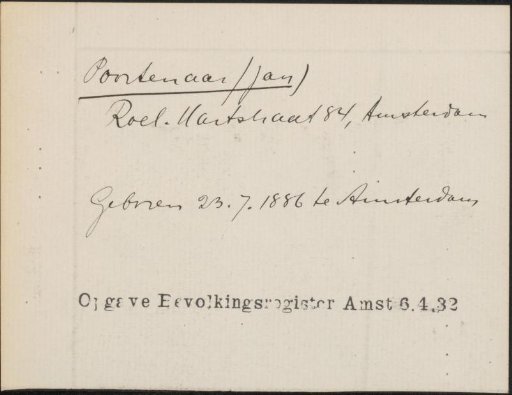 Poortenaar (Jan)
Roel. Hartstraat 84, Amsterdam
Geboren 23.7.1886 te Amsterdam
Opgave Bevolkingsregister Amst 6.4.32